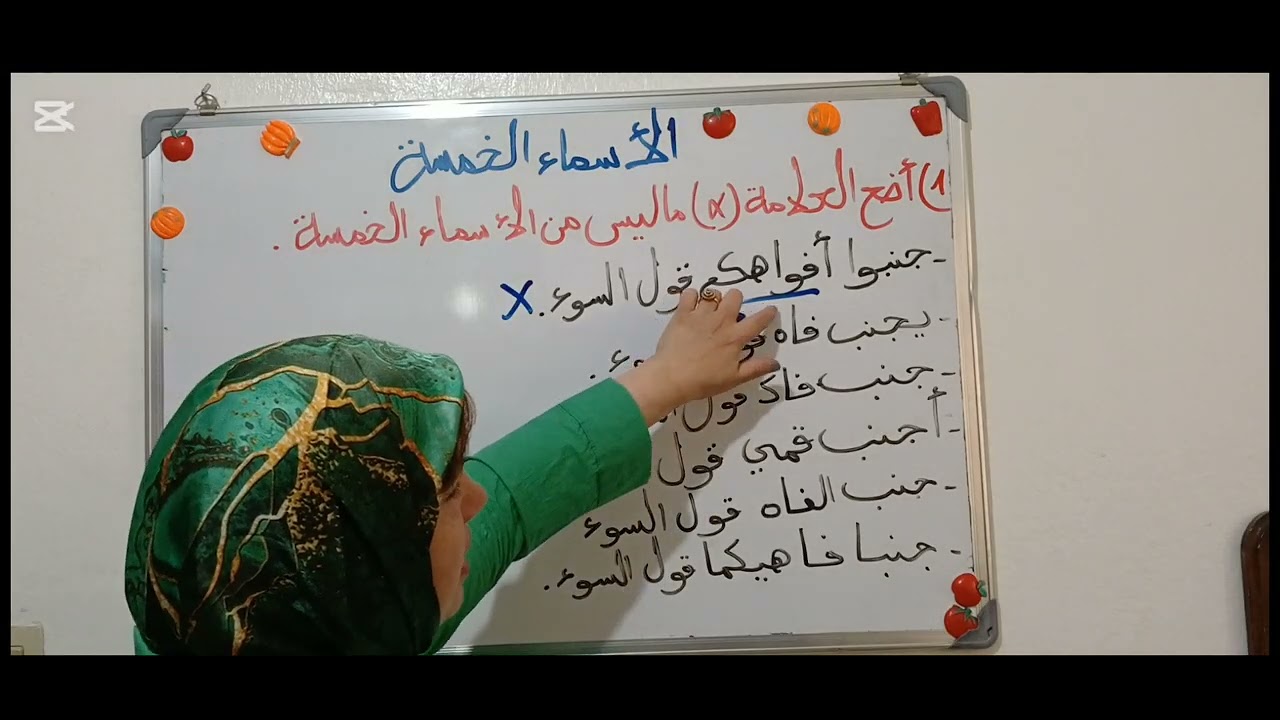 الأسماء الخمسة
1) أضع العلامة (x) ماليس من الأسماء الخمسة .
- جنبوا أفواهكم قول السوء . X
- يجنب فاه
- جنب فاك قول
- أجنب فمي قول
- جنب الفاه قول السوء
- جنبا فاهيكما قول السوء .